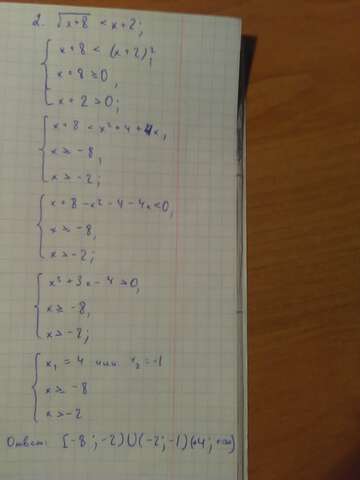 2. √x+8 < x+2;
x+8 < (x+2)²,
x+8 ≥ 0,
x+2 > 0;
x+8 < x²+4+4x,
x ≥ -8,
x > -2;
x+8-x²-4-4x<0,
x ≥ -8,
x > -2;
x²+3x-4>0,
x ≥ -8,
x > -2;
x₁ = 4 или x₂ = -1
x ≥ -8
x > -2
Ответ: [-8; -2)∪(-2; -1)(+4; +∞)